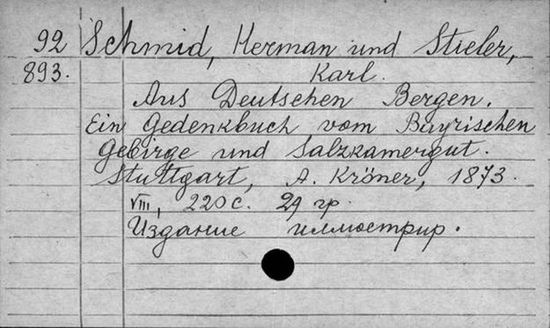 92 Schmid, Herman und Stieler,
893. Karl.
Aus Deutschen Bergen.
Ein Gedenkbuch vom Bayrischen
Gebirge und Salzkamergut.
Stuttgart, A. Kröner, 1873.
VIII, 220 с. 29 гр.
Издание иллюстрир.